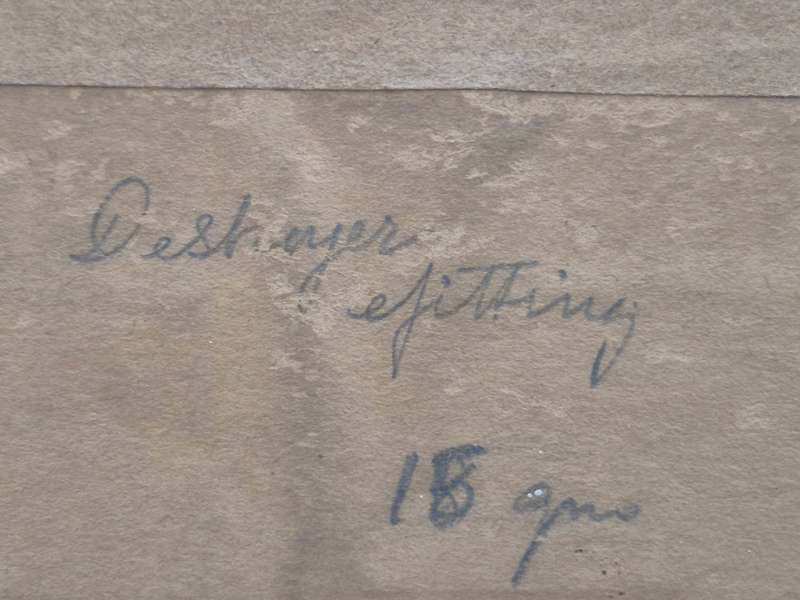 Destroyer
efitting
18 gns